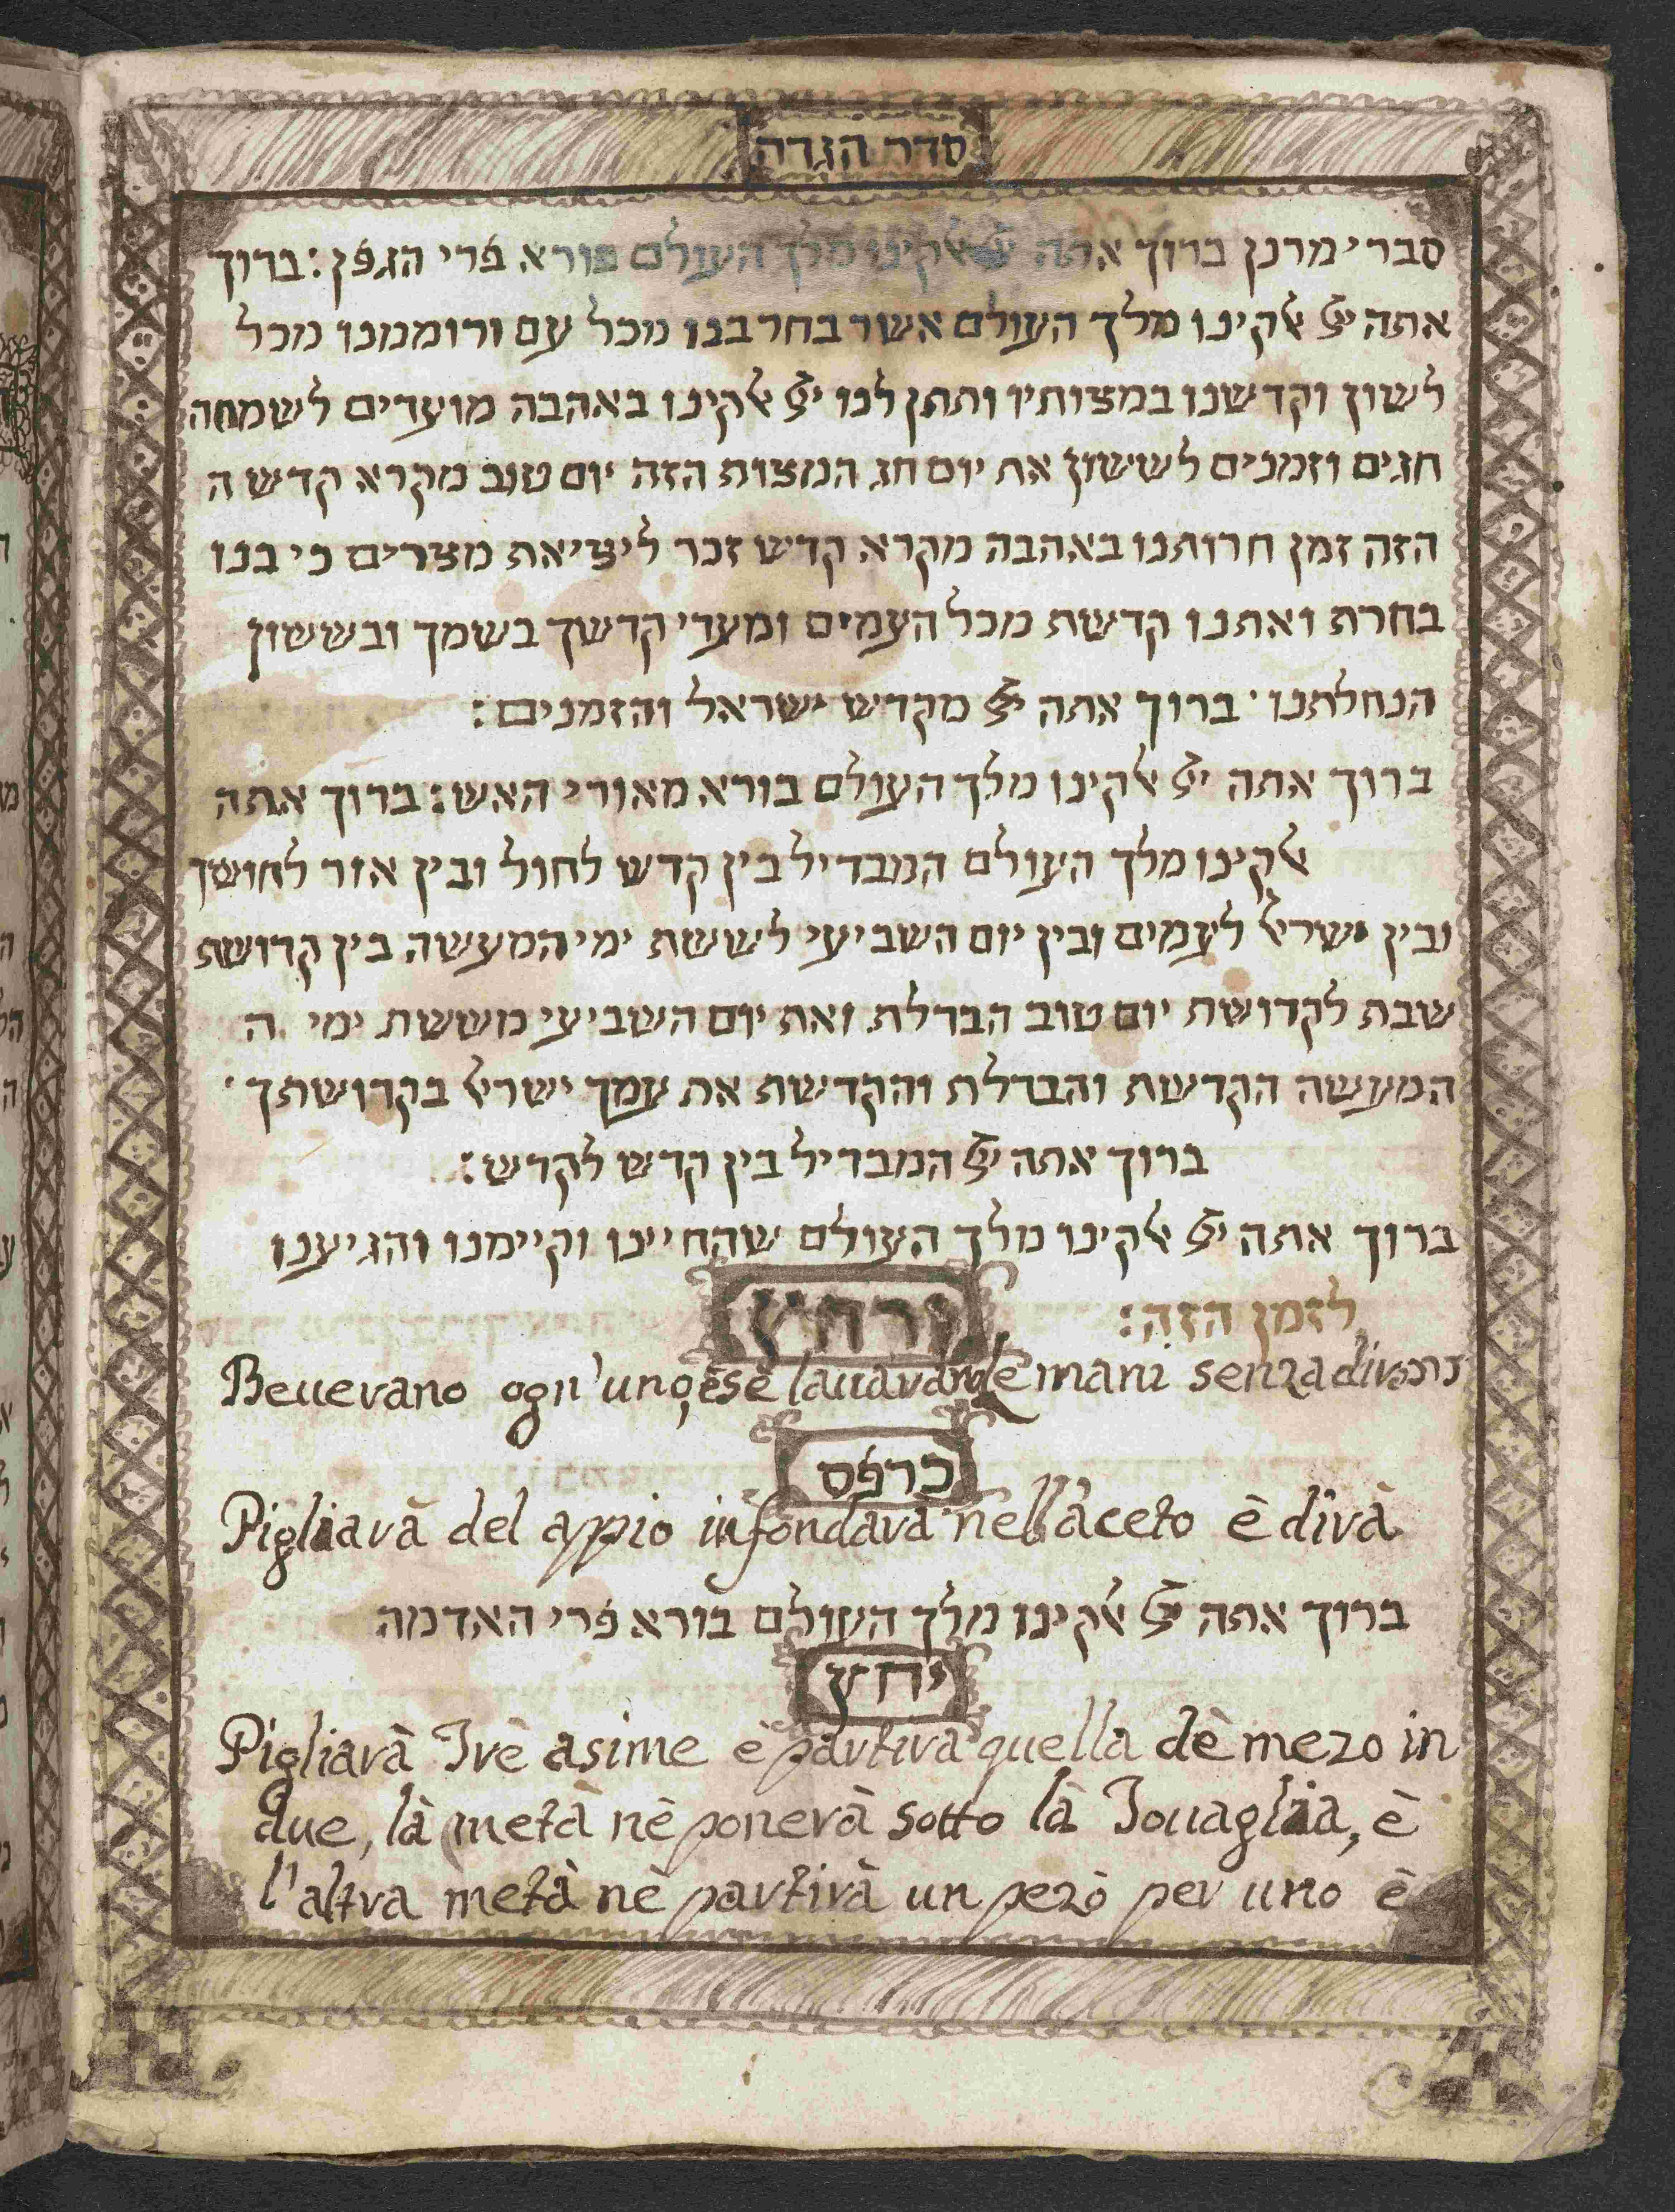 סדר הגדה
סברי מרנן ברוך אתה יי אלקינו מלך העולם בורא פרי הגפן: ברוך
אתה יי אלקינו מלך העולם אשר בחר בנו מכל עם ורוממנו מכל
לשון וקדשנו במצותיו ותתן לנו יי אלקינו באהבה מועדים לשמחה
חגים וזמנים לששון את יום חג המצות הזה יום טוב מקרא קדש ה
הזה זמן חרותנו באהבה מקרא קדש זכר ליציאת מצרים כי בנו
בחרת ואתנו קדשת מכל העמים ומעדי קדשך בשמך ובששון
הנחלתנו ׳ ברוך אתה יי מקדש ישראל והזמנים:
ברוך אתה יי אלקינו מלך העולם בורא מאורי האש: ברוך אתה
אלקינו מלך העולם המבדיל בין קדש לחול ובין אור לחושך
ובין ישראל לעמים ובין יום השביעי לששת ימי המעשה בין קדושת
שבת לקדושת יום טוב הבדלת ואת יום השביעי מששת ימי ה
המעשה הקדשת והבדלת והקדשת את עמך ישראל בקדושתך ׳
ברוך אתה יי המבדיל בין קדש לקדש:
ברוך אתה יי אלקינו מלך העולם שהחיינו וקיימנו והגיענו
לזמן הזה:
ורחץ
Beuerano ogn'uno, è se lauarano le mani senza
כרפס
Pigliarà del appio infondarà nell'aceto è dirà
ברוך אתה יי אלקינו מלך העולם בורא פרי האדמה
יחץ
Pigliarà Trè asime è partirà quella dè mezo in
due, là metà nè ponerà sotto là Touaglia, è
l'altra metà nè partirà un pezò per uno è